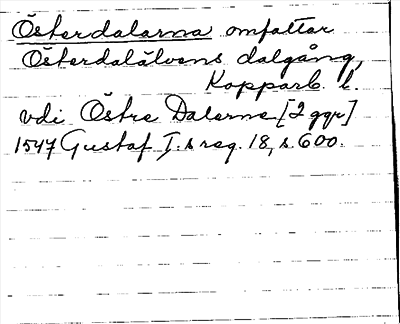 Österdalarna omfattar
Österdalälvens dalgång,
Kopparb. l.
vdi Östre Dalerne [2 ggr]
1547 Gustaf I.s reg. 18, s. 600.